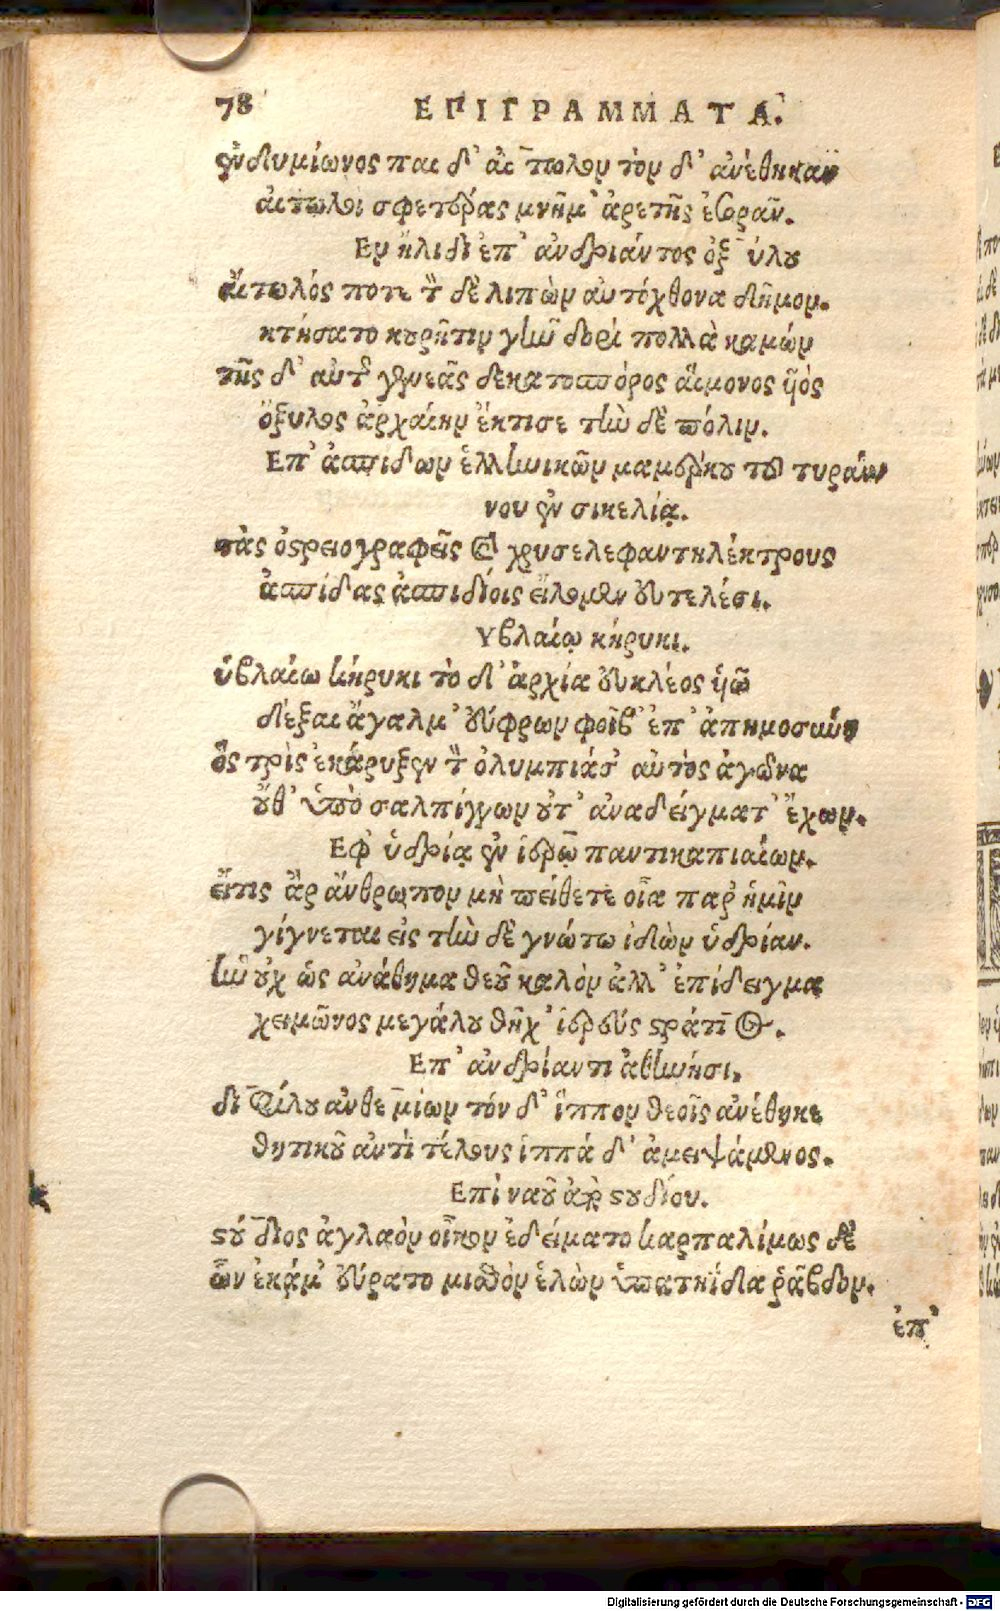 78 ΕΠΙΓΡΑΜΜΑΤΑ.
ἐνδυμίωνος παῖδ' αἰτωλὸν τὸν δ' ἀνέθηκαν
αἰτωλοὶ σφετέρας μνῆμ' ἀρετῆς ἐσορᾶν.
Εν ἤλιδι ἐπ' ἀνδριάντος ὀξύλου
αἰτωλός ποτε τὸν δὲ λιπὼν αὐτόχθονα δῆμον.
κτήσατο κουρῆτιν γῆν δορὶ πολλὰ καμών
τῆς δ' αὐτῆς γενεᾶς δεκατοσπόρος αἵμονος υἱός
ὄξυλος ἀρχαίην ἔκτισε τὴν δὲ πόλιν.
Επ' ἀσπίδων ἑλληνικῶν μαμέρκου τοῦ τυράν
νου ἐν σικελίᾳ.
τὰς ὀστρειογραφεῖς καὶ χρυσελεφαντηλέκτρους
ἀσπίδας ἀσπιδίοις εἵλομεν εὐτελέσι.
Υβλαίῳ κήρυκι.
ὑβλαίω κήρυκι τὸ δ' ἀρχία εὐκλέος υἱῶ
δέξαι ἄγαλμ' εὔφρων φοῖβ' ἐπ' ἀπημοσύνῃ
ὃς τρὶς ἐκάρυξεν τὸν ὀλυμπιάσ' αὐτὸς ἀγῶνα
οὔθ' ὑπὸ σαλπίγγων οὔτ' ἀναδείγματ' ἔχων.
Εφ' ὑδρίᾳ ἐν ἱερῷ παντικαπιαίων.
εἴτις ἂρ ἄνθρωπον μὴ πείθετε οἷα παρ' ἡμῖν
γίγνεται εἰς τὴν δὲ γνώτω ἰδὼν ὑδρίαν.
ἣν οὐχ ὡς ἀνάθημα θεοῦ καλὸν ἀλλ' ἐπίδειγμα
χειμῶνος μεγάλου θῆχ' ἱερεὺς στράτιος.
Επ' ἀνδρίαντι ἀθήνησι.
διφίλου ἀνθεμίων τόν δ' ἵππον θεοῖς ἀνέθηκε
θητικοῦ ἀντὶ τέλους ἱππάδ' ἀμειψάμενος.
Επὶ ναοῦ ἀρ στουδίου.
στούδιος ἀγλαὸν οἶκον ἐδείματο καρπαλίμως δὲ
ὧν ἐκάμ' εὕρατο μισθὸν ἑλὼν ὑπατηΐδα ῥάβδον.
ἐπ'
Digitalisierung gefördert durch die Deutsche Forschungsgemeinschaft - DFG